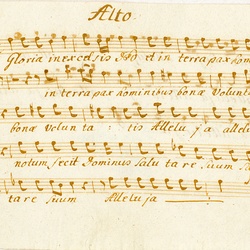 Alto.
Gloria in excelsis Deo et in terra pax hom
in terra pax hominibus bonæ Volunt
bonæ Volunta : tis Allelu ja allelu
notum fecit Dominus Salu ta re suum
ta re suum Alleluja